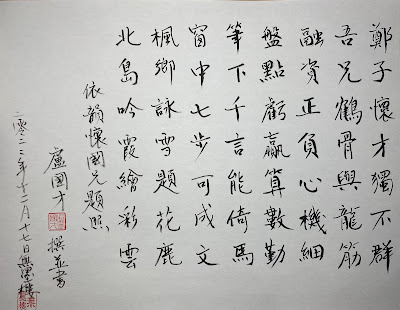 鄭子懷才獨不群
吾兄鶴骨與龍筋
融資正負心機細
盤點虧贏算數勤
筆下千言能倚馬
窗中七步可成文
楓鄉詠雪題花鹿
北島吟霞繪彩雲
依韻懷國兄題照
盧國才 撰並書
二零二二年十二月十七日樓